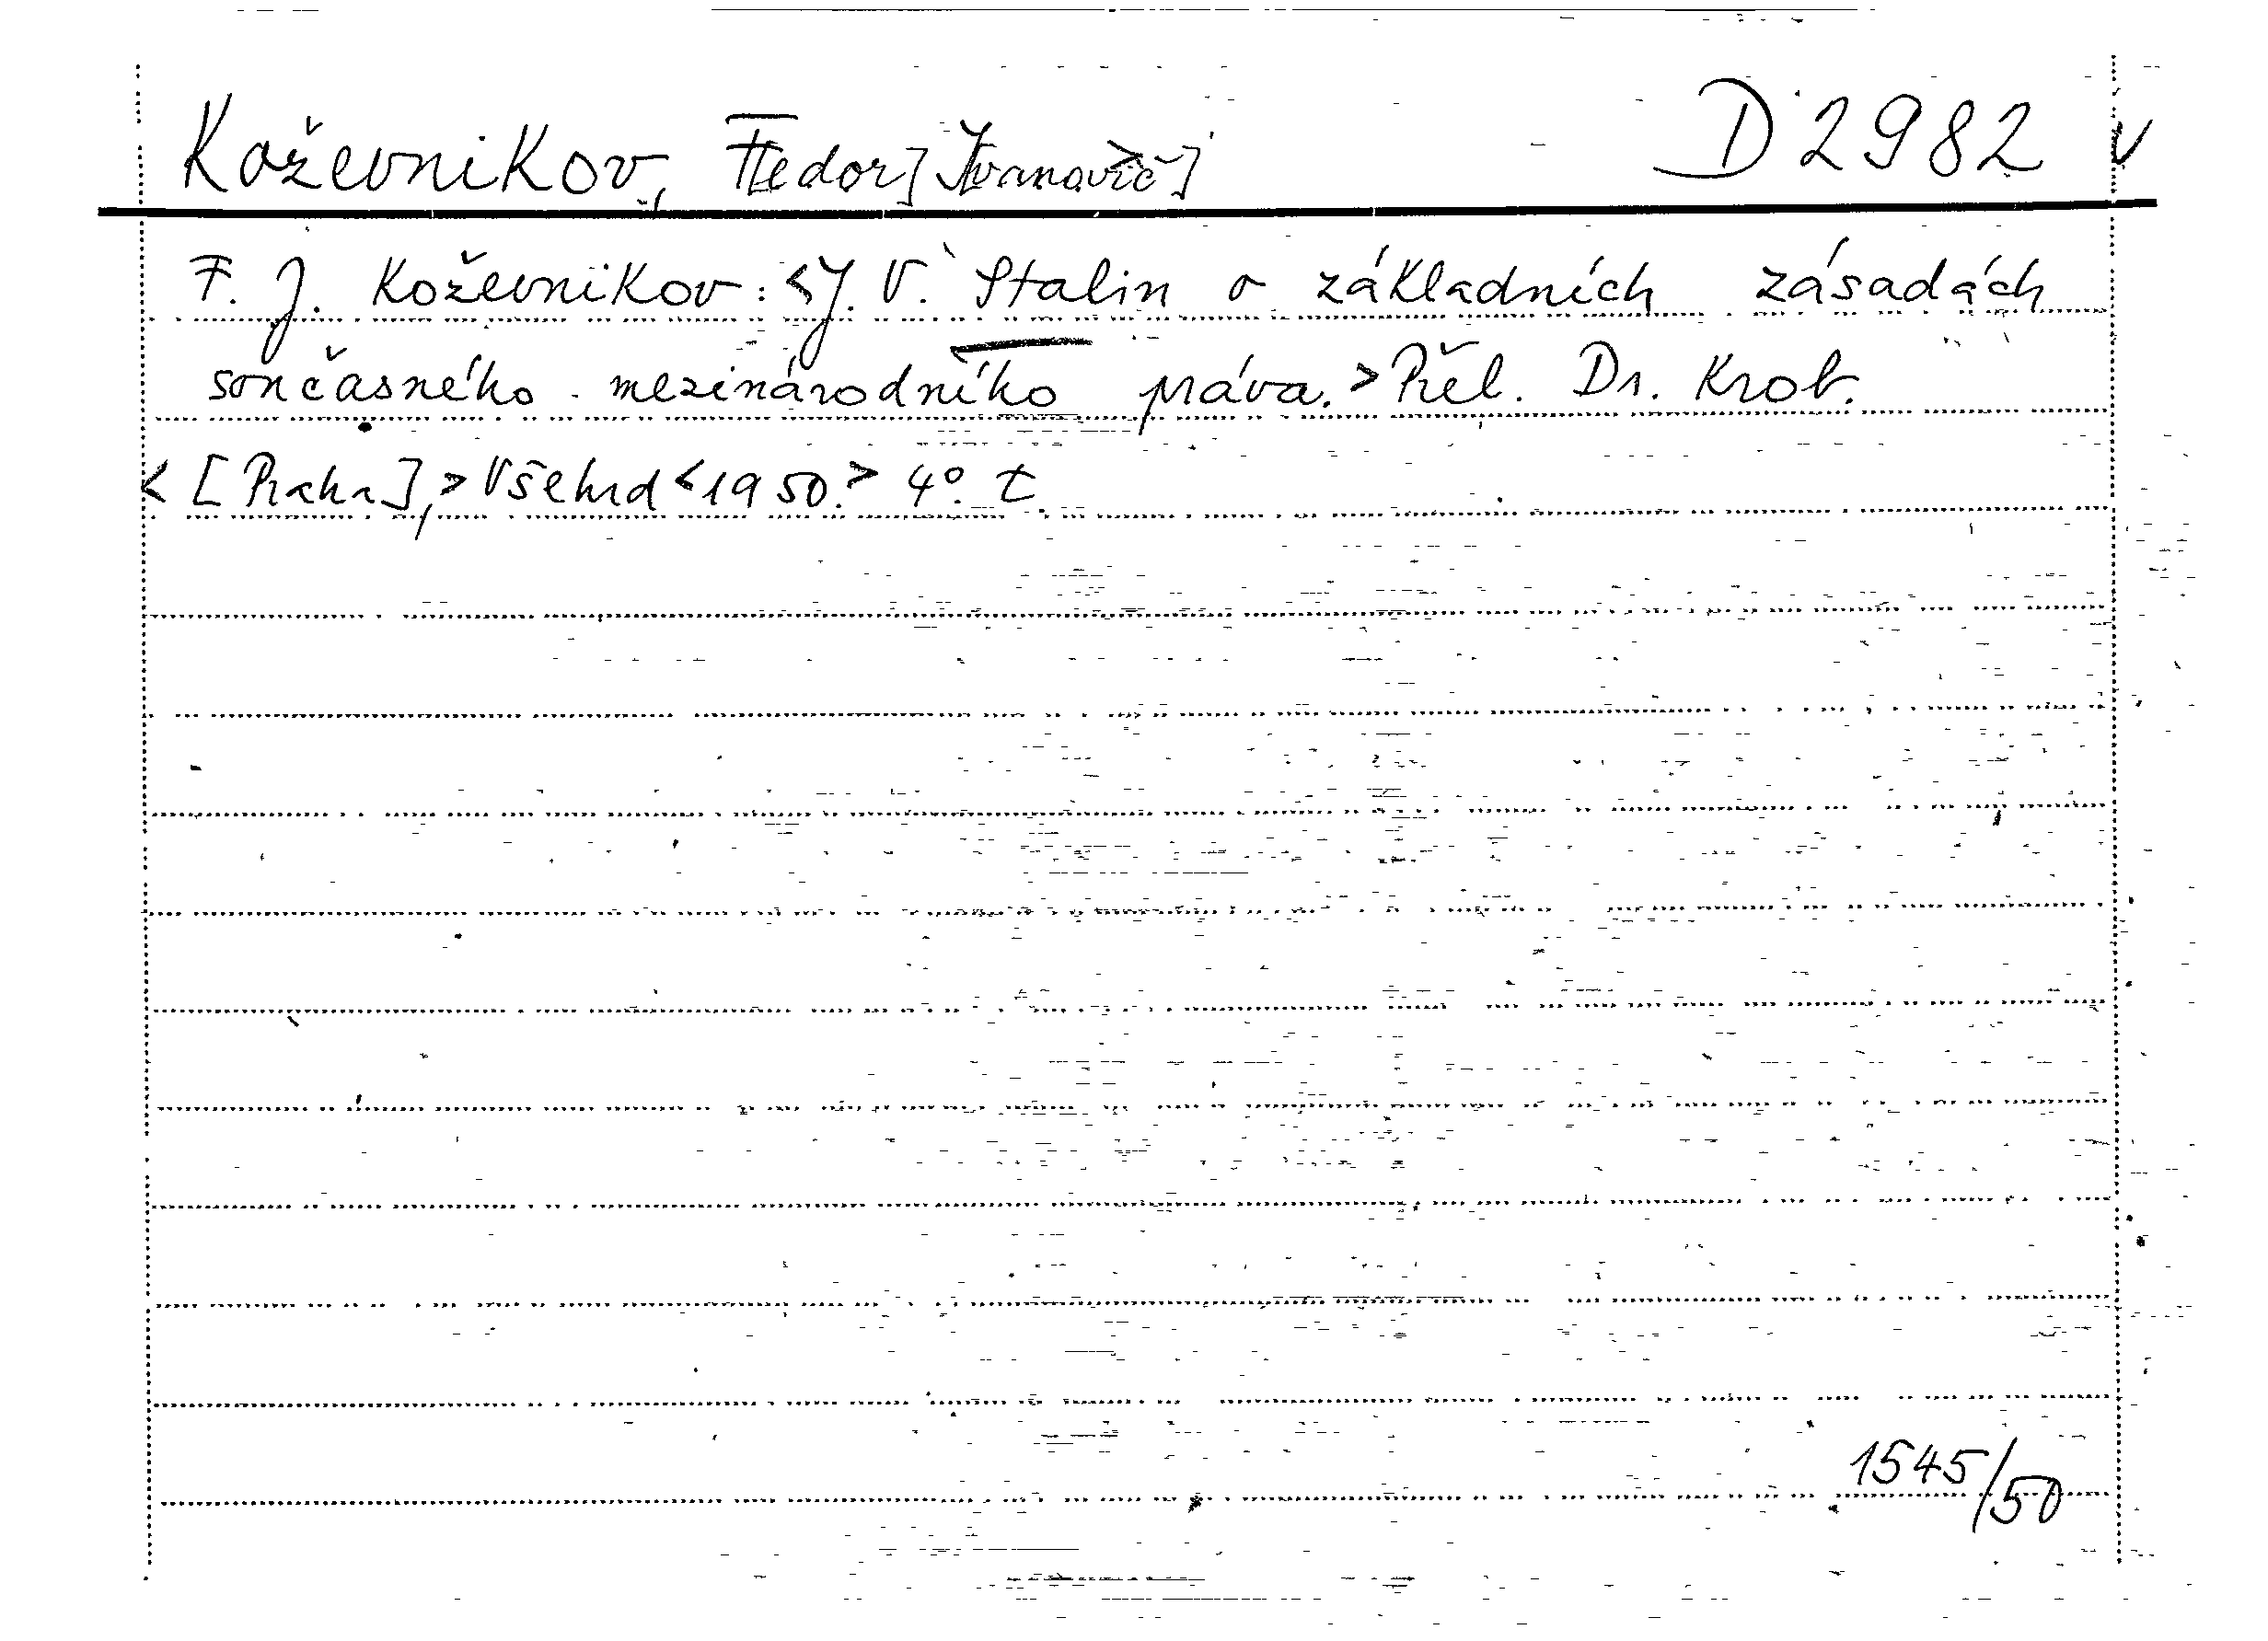 Koževnikov, F[edor] J[vanovič] D 2982 v
F. J. Koževnikov: <J. V. Stalin o základních zásadách
současného mezinárodního práva.> Přel. Dr. Krob.
<[Praha],> Všehrd <1950.> 4°. t.
1545/50